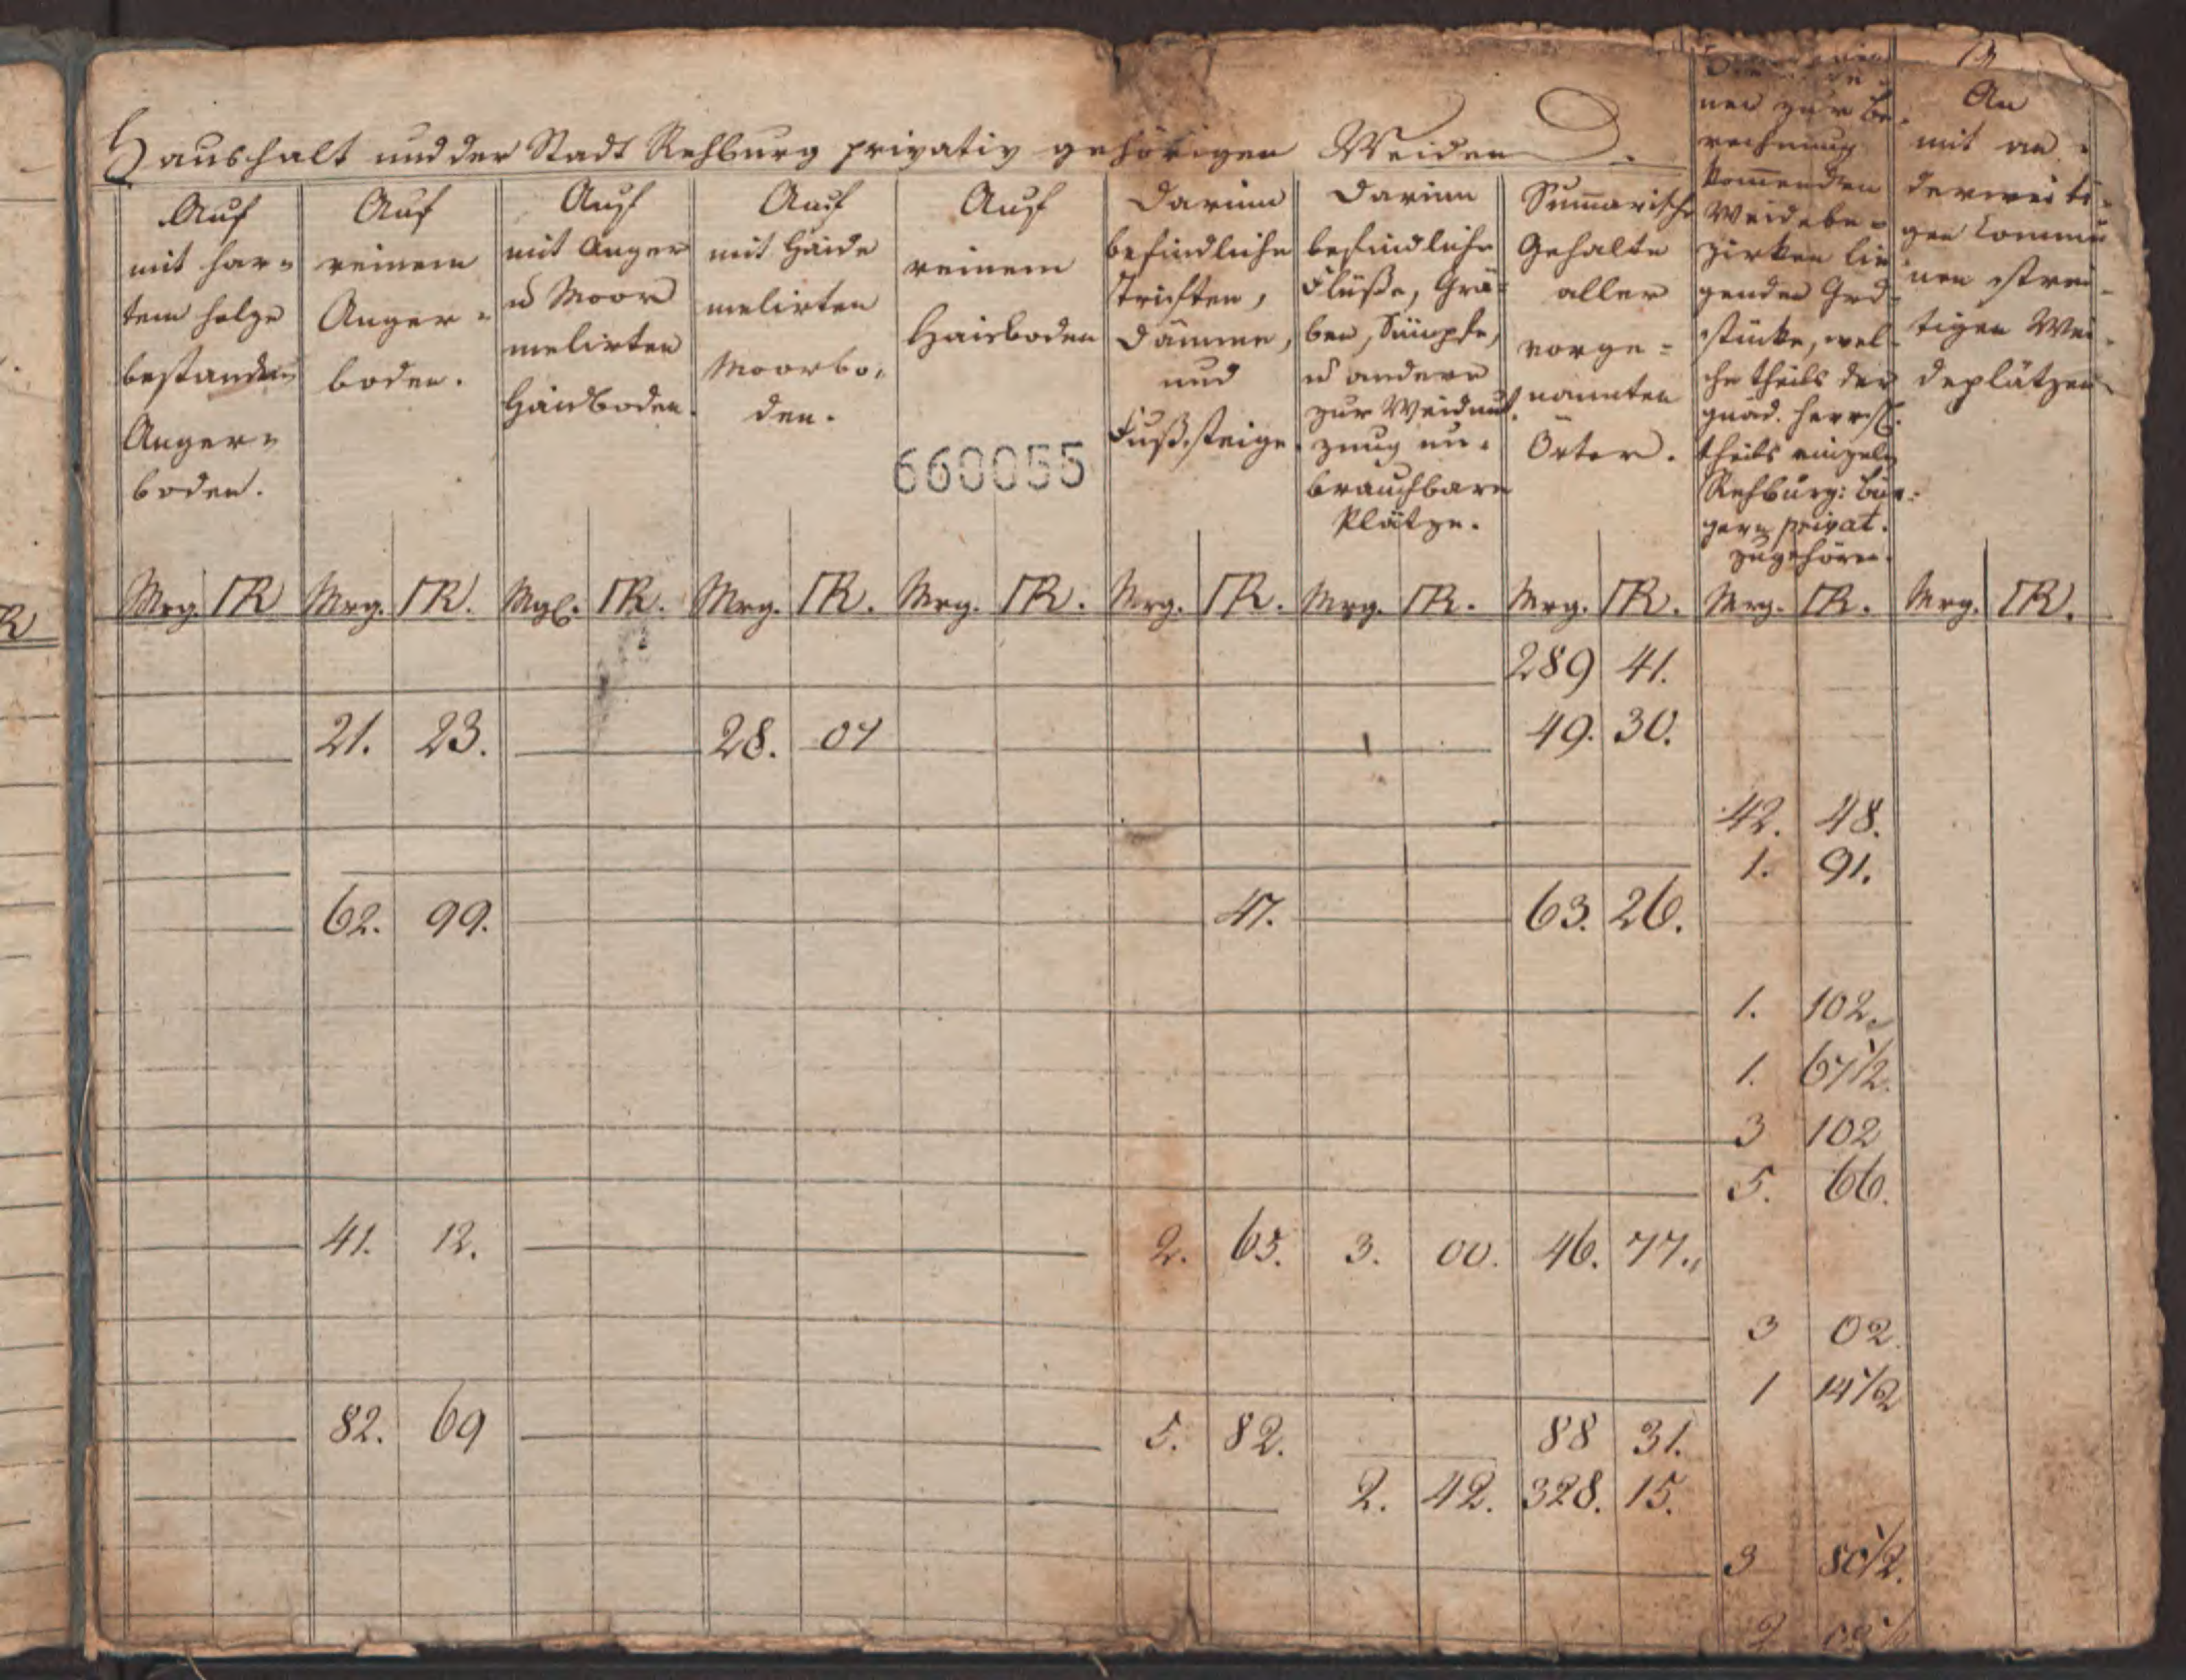 13
Haushalt und der Stadt Rehburg privativ gehörigen Weiden.
Auf
mit har=
tem holze
bestanden
Anger=
boden.
Auf
reinem
Anger=
boden.
Auf
mit Anger
u Moor
melirten
Haidboden.
Auf
mit Haide
melirten
Moorbo,
den.
Auf
reinem
Haidboden
660055
Darinn
befindliche
Triften,
Dämme,
und
Fußsteige.
Darinn
befindliche
Flüße, Grä=
ben, Sümpfe,
u andere
zur Weidnut,
zung un=
brauchbare
Plätze.
Sum̄arische
Gehalte
aller
vorge=
nannten
Örter.
nen zur Be=
rechnung
kom̄enden
Weidebe=
zirken lie
genden Grd
stücke, wel=
che theils der
gnäd. Herrsch.
theils einzeln
Rehburg: Bür=
gern privat.
zugehören.
An
mit an=
derweiti=
gen Commu
nen strei=
tigen Wei=
deplätzen
Mrg. □R Mrg. □R. Mrg. □R. Mrg. □R. Mrg. □R. Mrg. □R. Mrg. □R. Mrg. □R. Mrg. □R. Mrg. □R.
289 41.
21. 23. 28. 07 49. 30.
42. 48.
1. 91.
62. 99. 47. 63. 26.
1. 102.
1. 67 1/2.
3 102
5. 66.
41. 12. 2. 65. 3. 00. 46. 77.
3 02.
1 14 1/2
82. 69 5. 82. 88 31.
2. 42. 328. 15.
3 80 1/2.
2